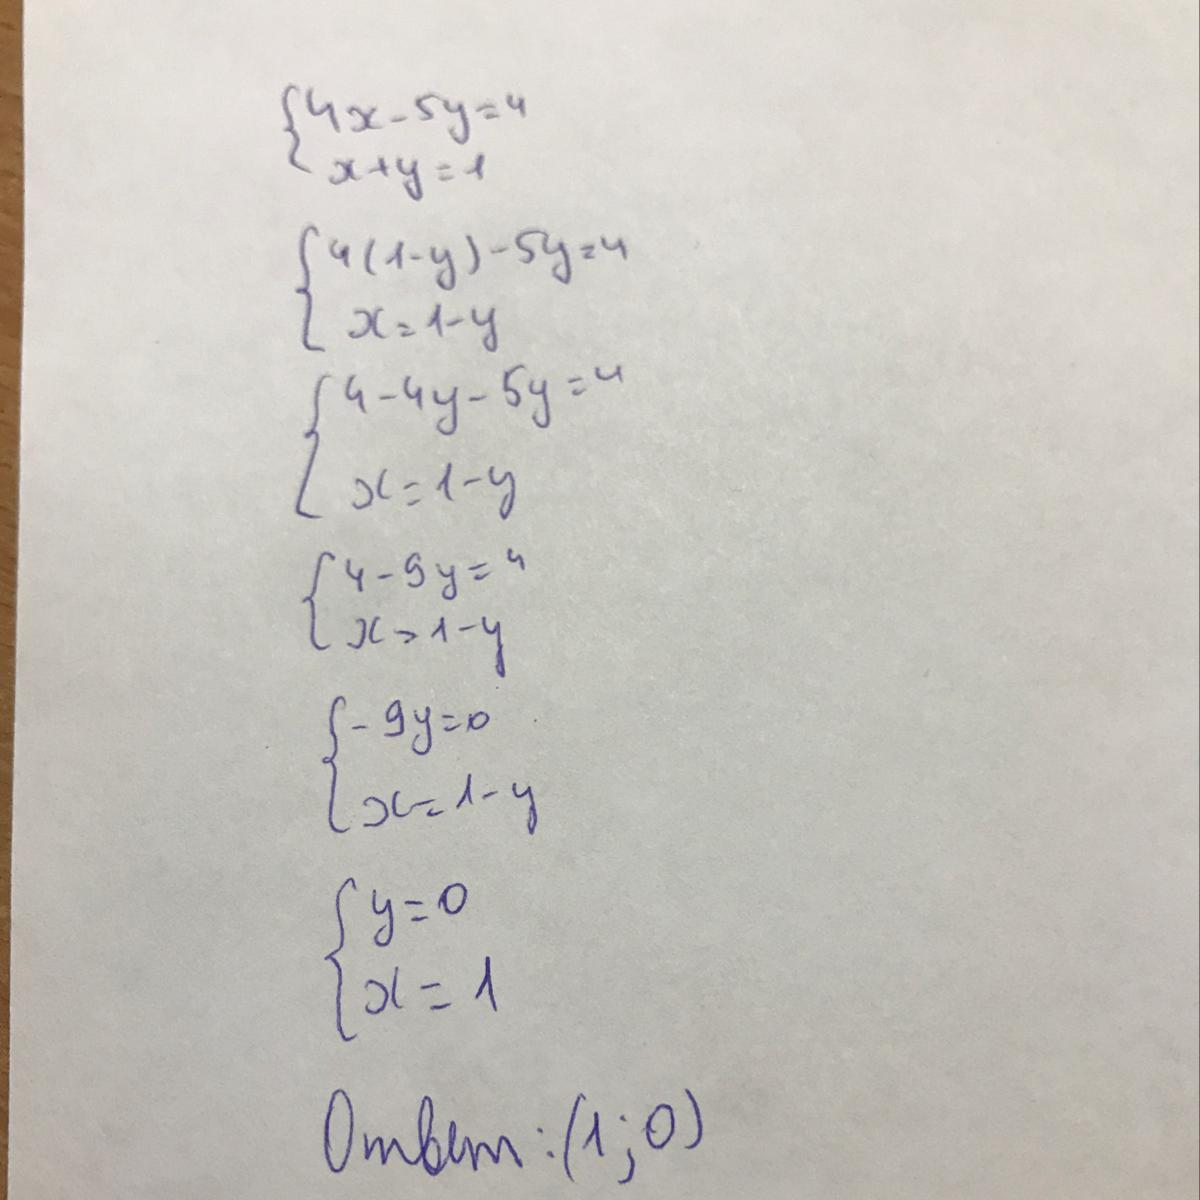 4x-5y=4
x+y=1
4(1-y)-5y=4
x=1-y
4-4y-5y=4
x=1-y
4-9y=4
x=1-y
-9y=0
x=1-y
y=0
x=1
Ответ:(1;0)